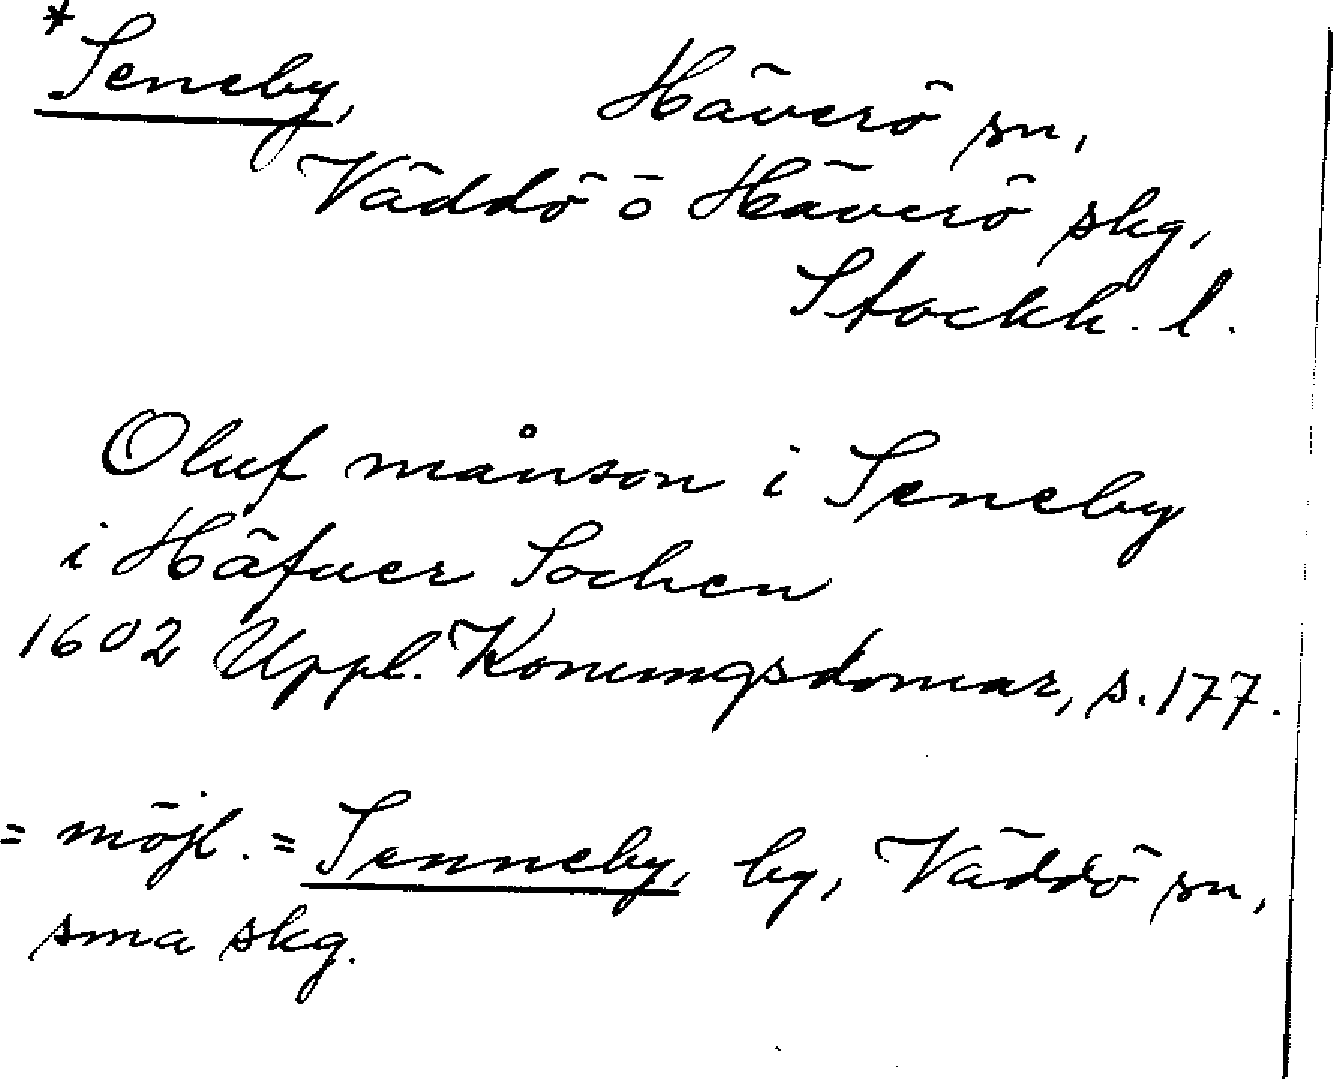 *Seneby, Häverö sn,
Väddö o Häverö skg,
Stockh. l.
Oluf månson i Seneby
i Häfuer Sochen
1602 Uppl. Konungsdomar, s. 177.
= möjl. = Senneby, by, Väddö sn,
sma skg.